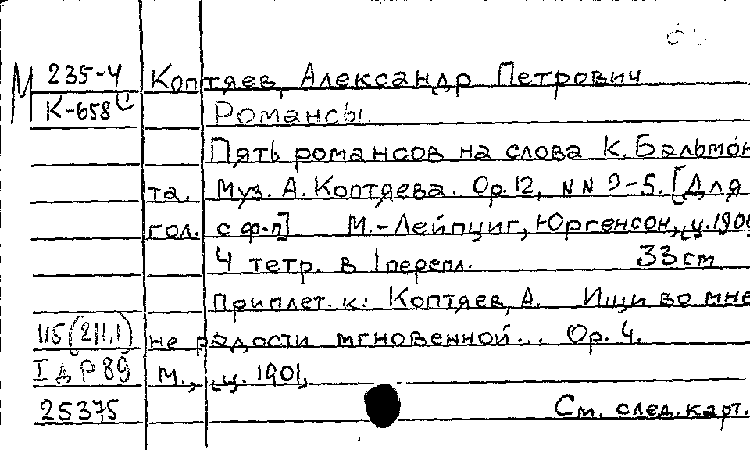 М 235-4 Коптяев, Александр Петрович
К-658 Романсы.
Пять романсов на слова К. Бальмон
та. Муз. А. Коптяева. Op. 12, NN 2-5. [Для
гол. с ф-п] М.-Лейпциг, Юргенсон, ц. 190
4 тетр. в 1 перепл. 33 см
Приплет. к: Коптяев, А. Ищи во мне
115(211.1) не радости мгновенной... Op. 4.
I д Р 89 М., ц. 1901.
25375 См. след. карт.